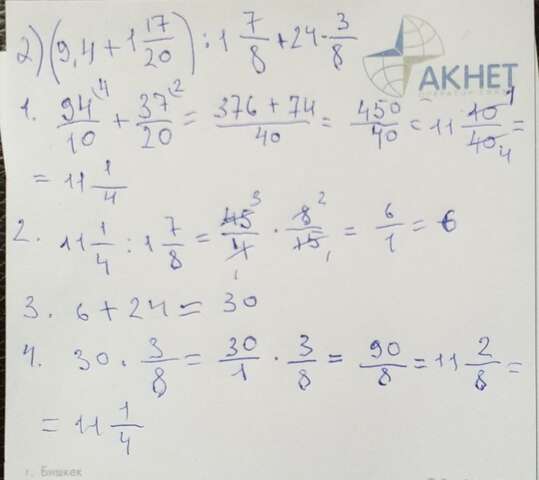 2) (9,4 + 1 17/20) : 1 7/8 + 24 · 3/8
AKHET
1. 94/10 ⁽⁴ + 37/20 ⁽² = (376 + 74)/40 = 450/40 = 11 10/40 ¹ ₄ =
= 11 1/4
2. 11 1/4 : 1 7/8 = 45/4 ³ ₁ · 8/15 ² ₁ = 6/1 = 6
3. 6 + 24 = 30
4. 30 · 3/8 = 30/1 · 3/8 = 90/8 = 11 2/8 =
= 11 1/4
г. Бишкек